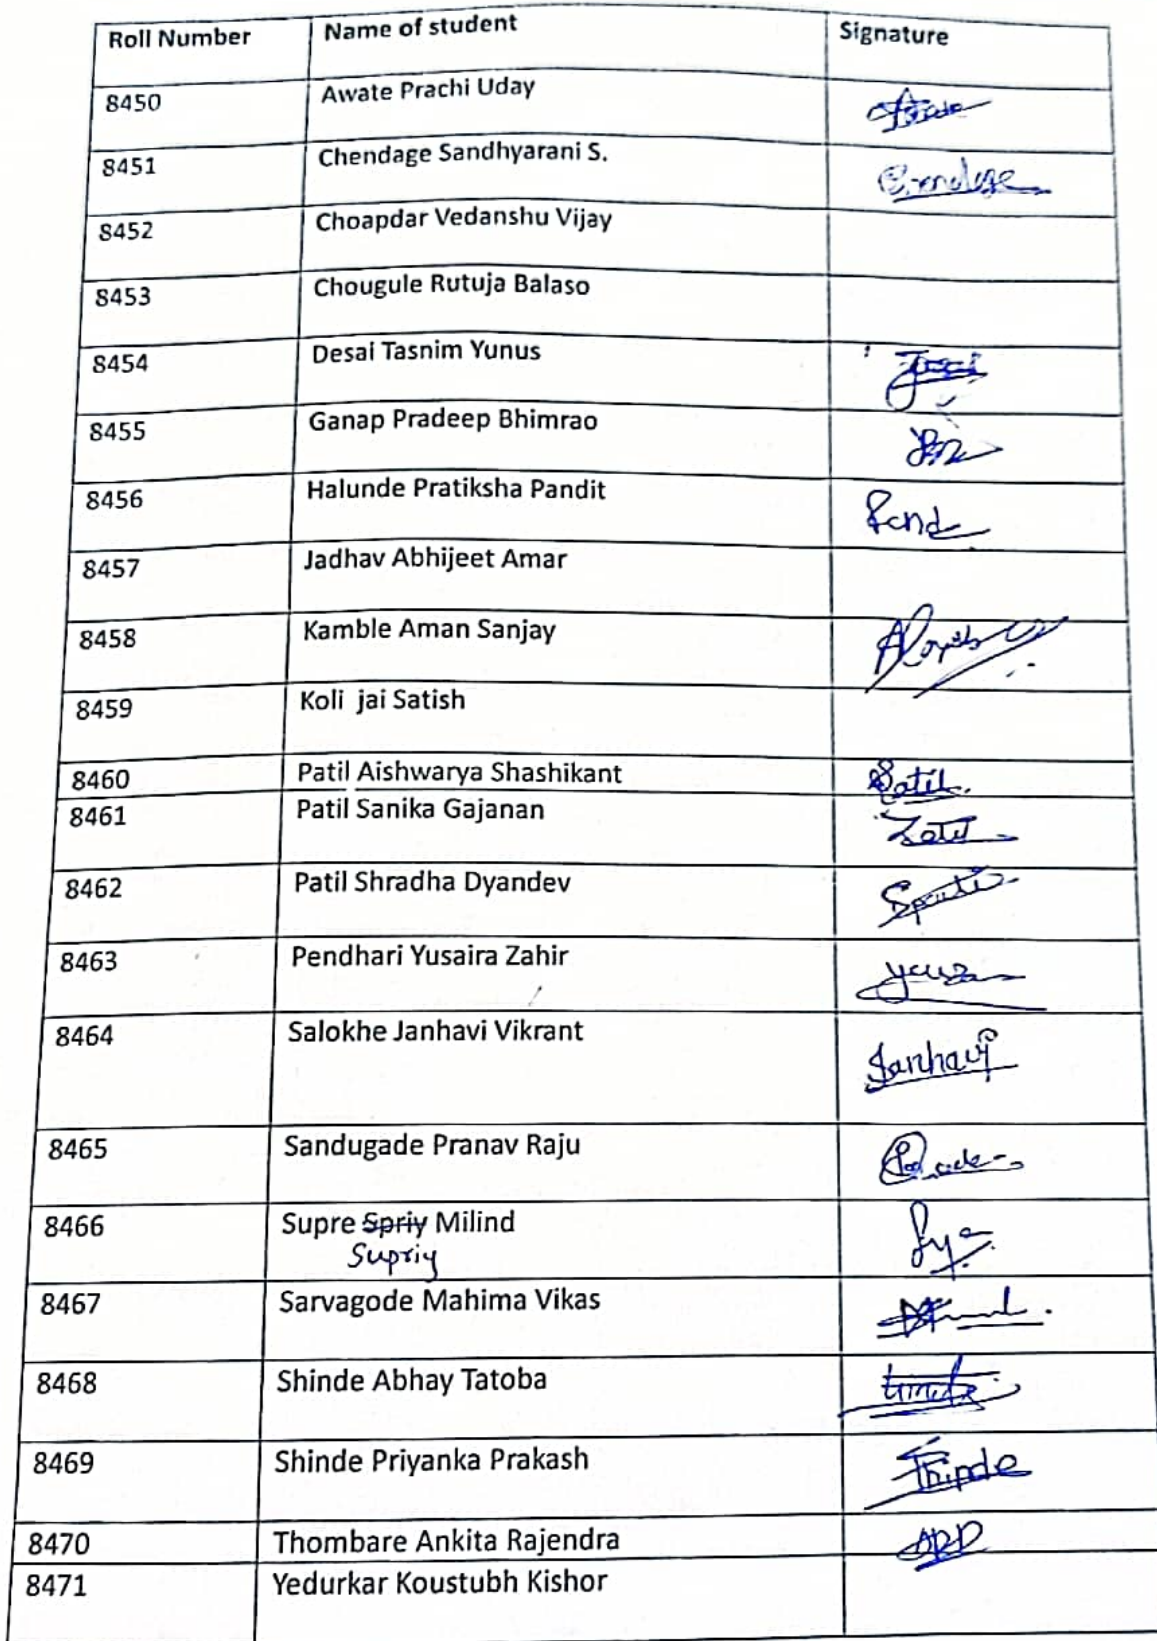 Roll Number Name of student Signature
8450 Awate Prachi Uday
8451 Chendage Sandhyarani S.
8452 Choapdar Vedanshu Vijay
8453 Chougule Rutuja Balaso
8454 Desai Tasnim Yunus
8455 Ganap Pradeep Bhimrao
8456 Halunde Pratiksha Pandit
8457 Jadhav Abhijeet Amar
8458 Kamble Aman Sanjay
8459 Koli jai Satish
8460 Patil Aishwarya Shashikant Patil
8461 Patil Sanika Gajanan
8462 Patil Shradha Dyandev
8463 Pendhari Yusaira Zahir
8464 Salokhe Janhavi Vikrant Janhavi
8465 Sandugade Pranav Raju
8466 Supre Spriy Milind
Supriy
8467 Sarvagode Mahima Vikas
8468 Shinde Abhay Tatoba
8469 Shinde Priyanka Prakash Shinde
8470 Thombare Ankita Rajendra
8471 Yedurkar Koustubh Kishor